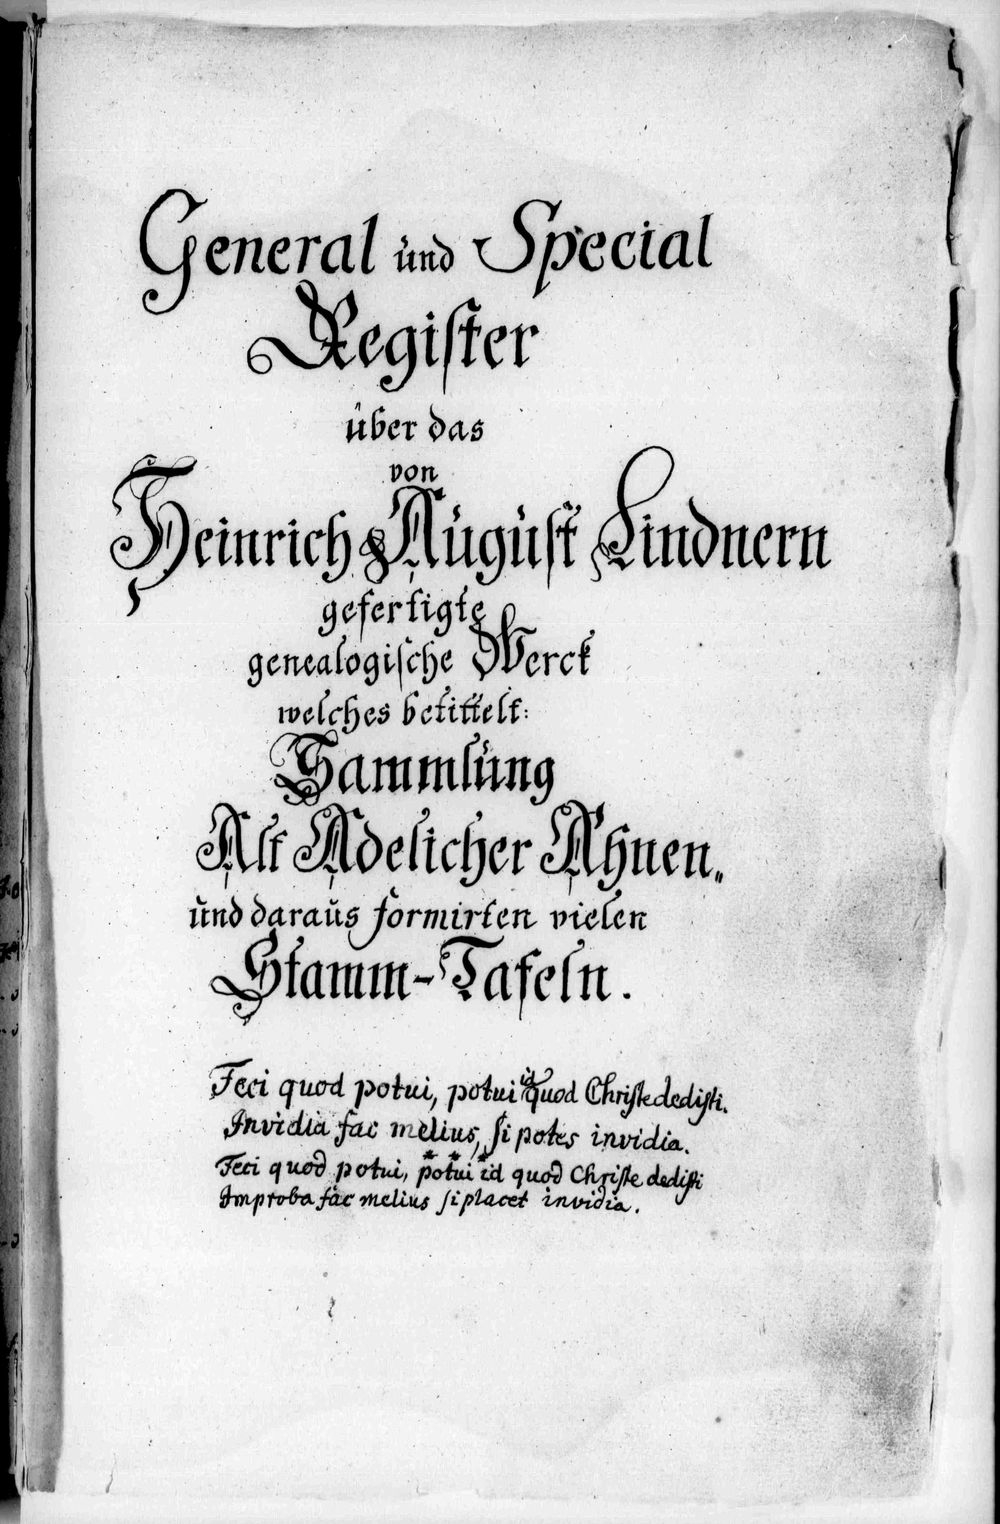 General und Special
Register
über das
von
Heinrich August Lindnern
gefertigte
genealogische Werck
welches betittelt:
Sammlung
Alt Adelicher Ahnen,,
und daraus formirten vielen
Stamm-Tafeln.
Feci quod potui, potui id quod Christe dedisti.
Invidia fac melius, si potes invidia.
Feci quod potui, potui id quod Christe dedisti
Improba fac melius si placet invidia.